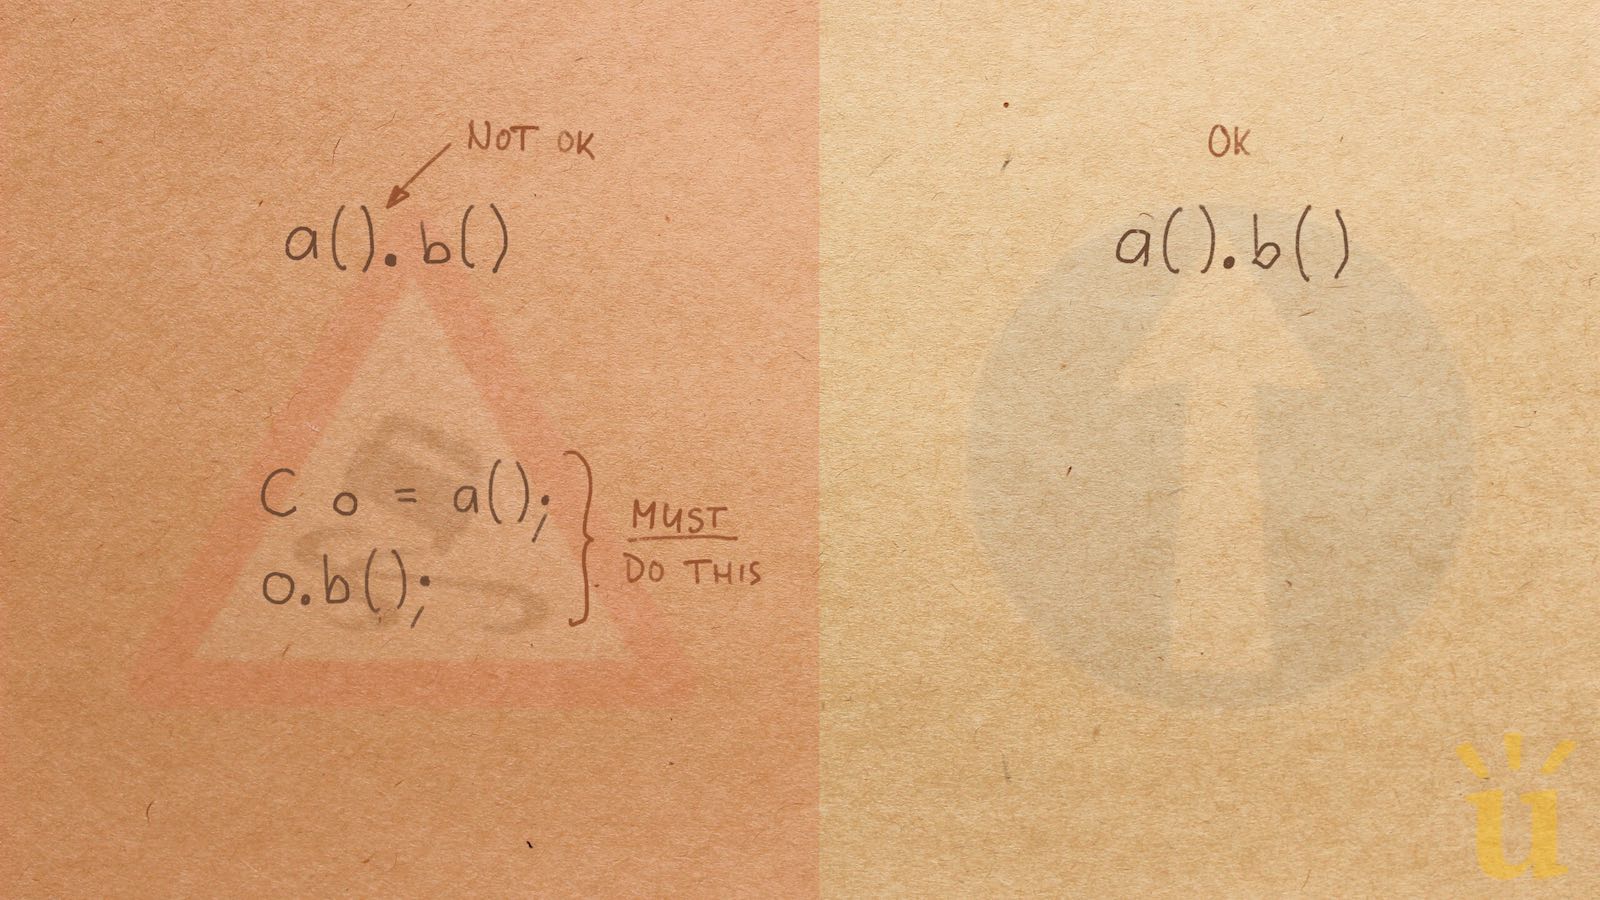 NOT OK
a().b()
C o = a();
o.b();
MUST
DO THIS
OK
a().b()
u